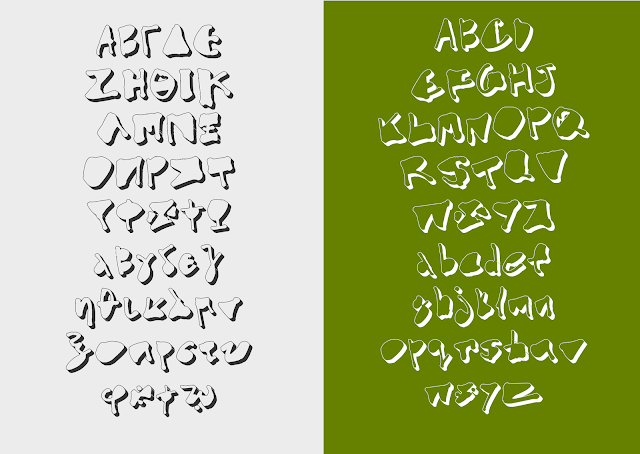 ΑΒΓΔΕ
ΖΗΘΙΚ
ΛΜΝΞ
ΟΠΡΣΤ
ΥΦΧΨΩ
αβγδεζ
ηθικλμν
ξοπρστυ
φχψω
ABCD
EFGHJ
KLMNOPQ
RSTUV
WXYZ
abcdef
ghjklmn
opqrstuv
wxyz